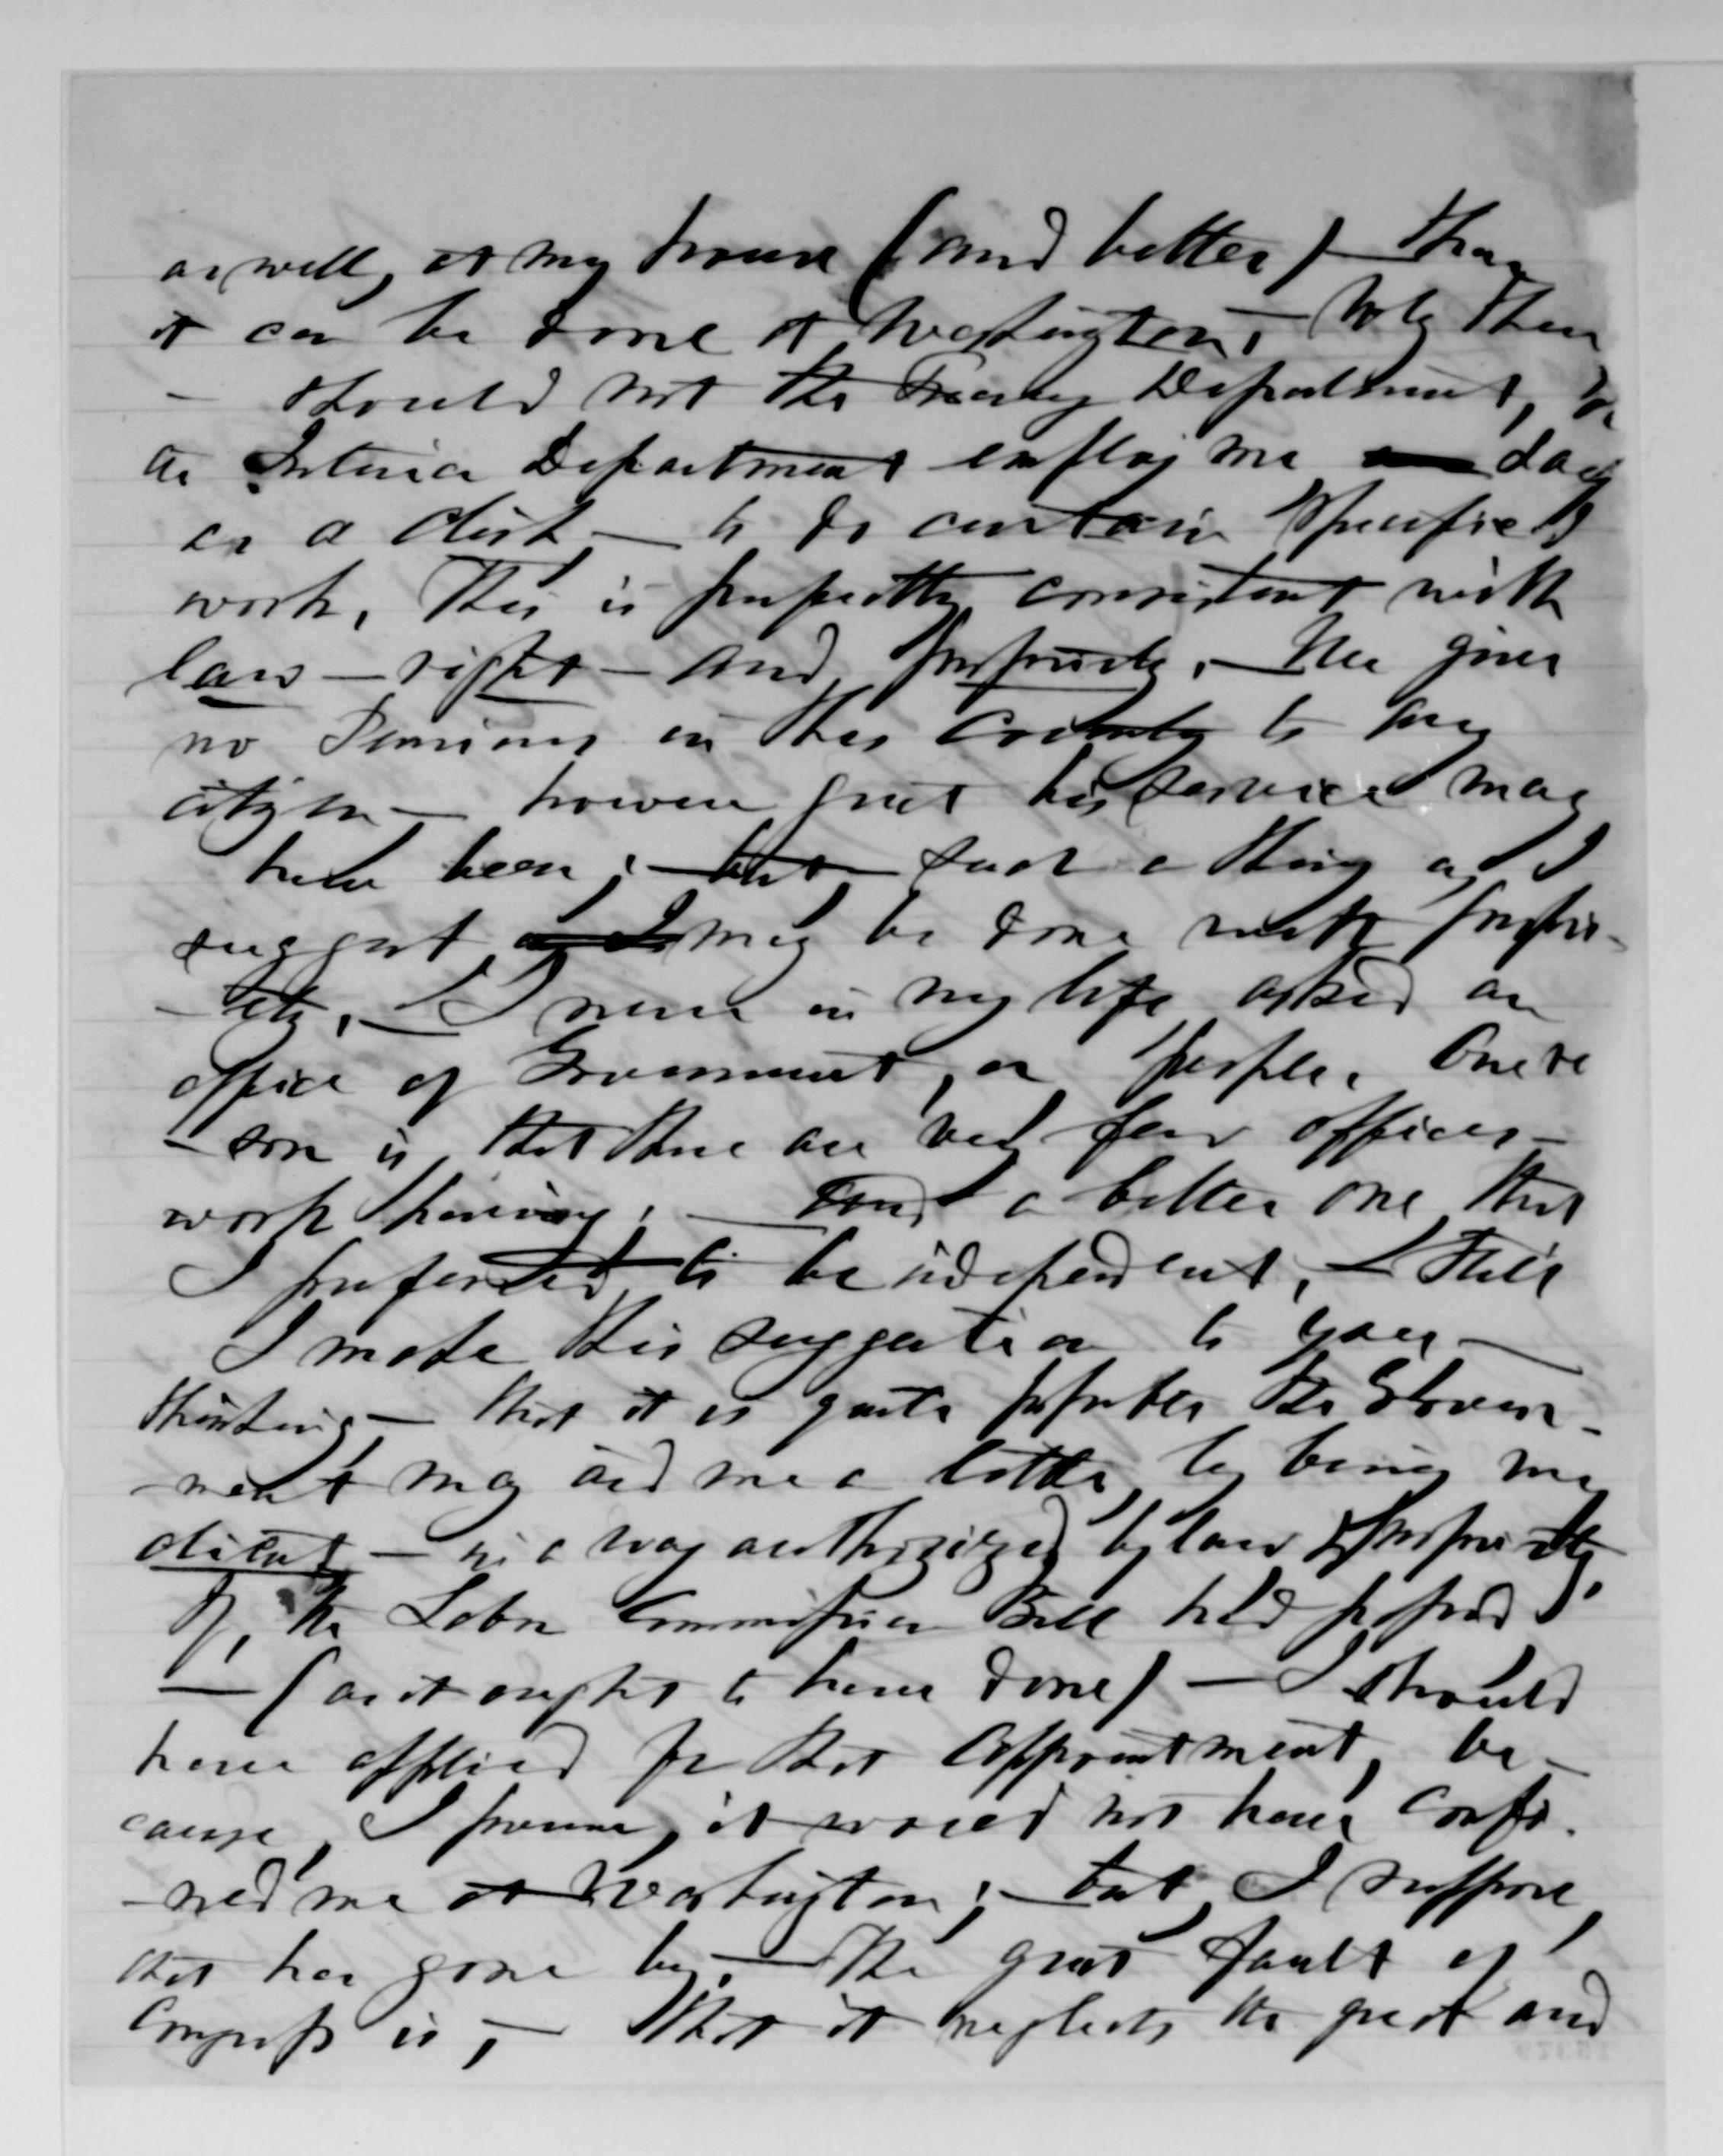 as well, at my house (and better) - than
it can be done at Washington, - Why then
- should not the Treasury Department, or
the Interior Department employ me day
as a clerk, - to do certain specified
work. This is perfectly consistent with
law - right - and propriety. - We give
no Pensions in this Country to any
citizen - however great his service may
have been; - but, such a thing as I
suggest, may be done with proprie-
- ty. - I never in my life asked an
office of Government, or people. One rea
- son is, that there are very few offices -
worth having; - and a better one that
I preferred, to be independent. - Still
I make this suggestion to you -
thinking - that it is quite possible the Govern-
- ment may aid me a little, by being my
client - in a way authorized by law & propriety.
If, the Labor Commission Bill had passed
- (as it ought to have done) - I should
have applied for that appointment, be-
cause, I presume, it would not have confi-
- ned me at Washington; - but, I suppose,
that has gone by. - The great fault of
Congress is, - that it neglects the great and